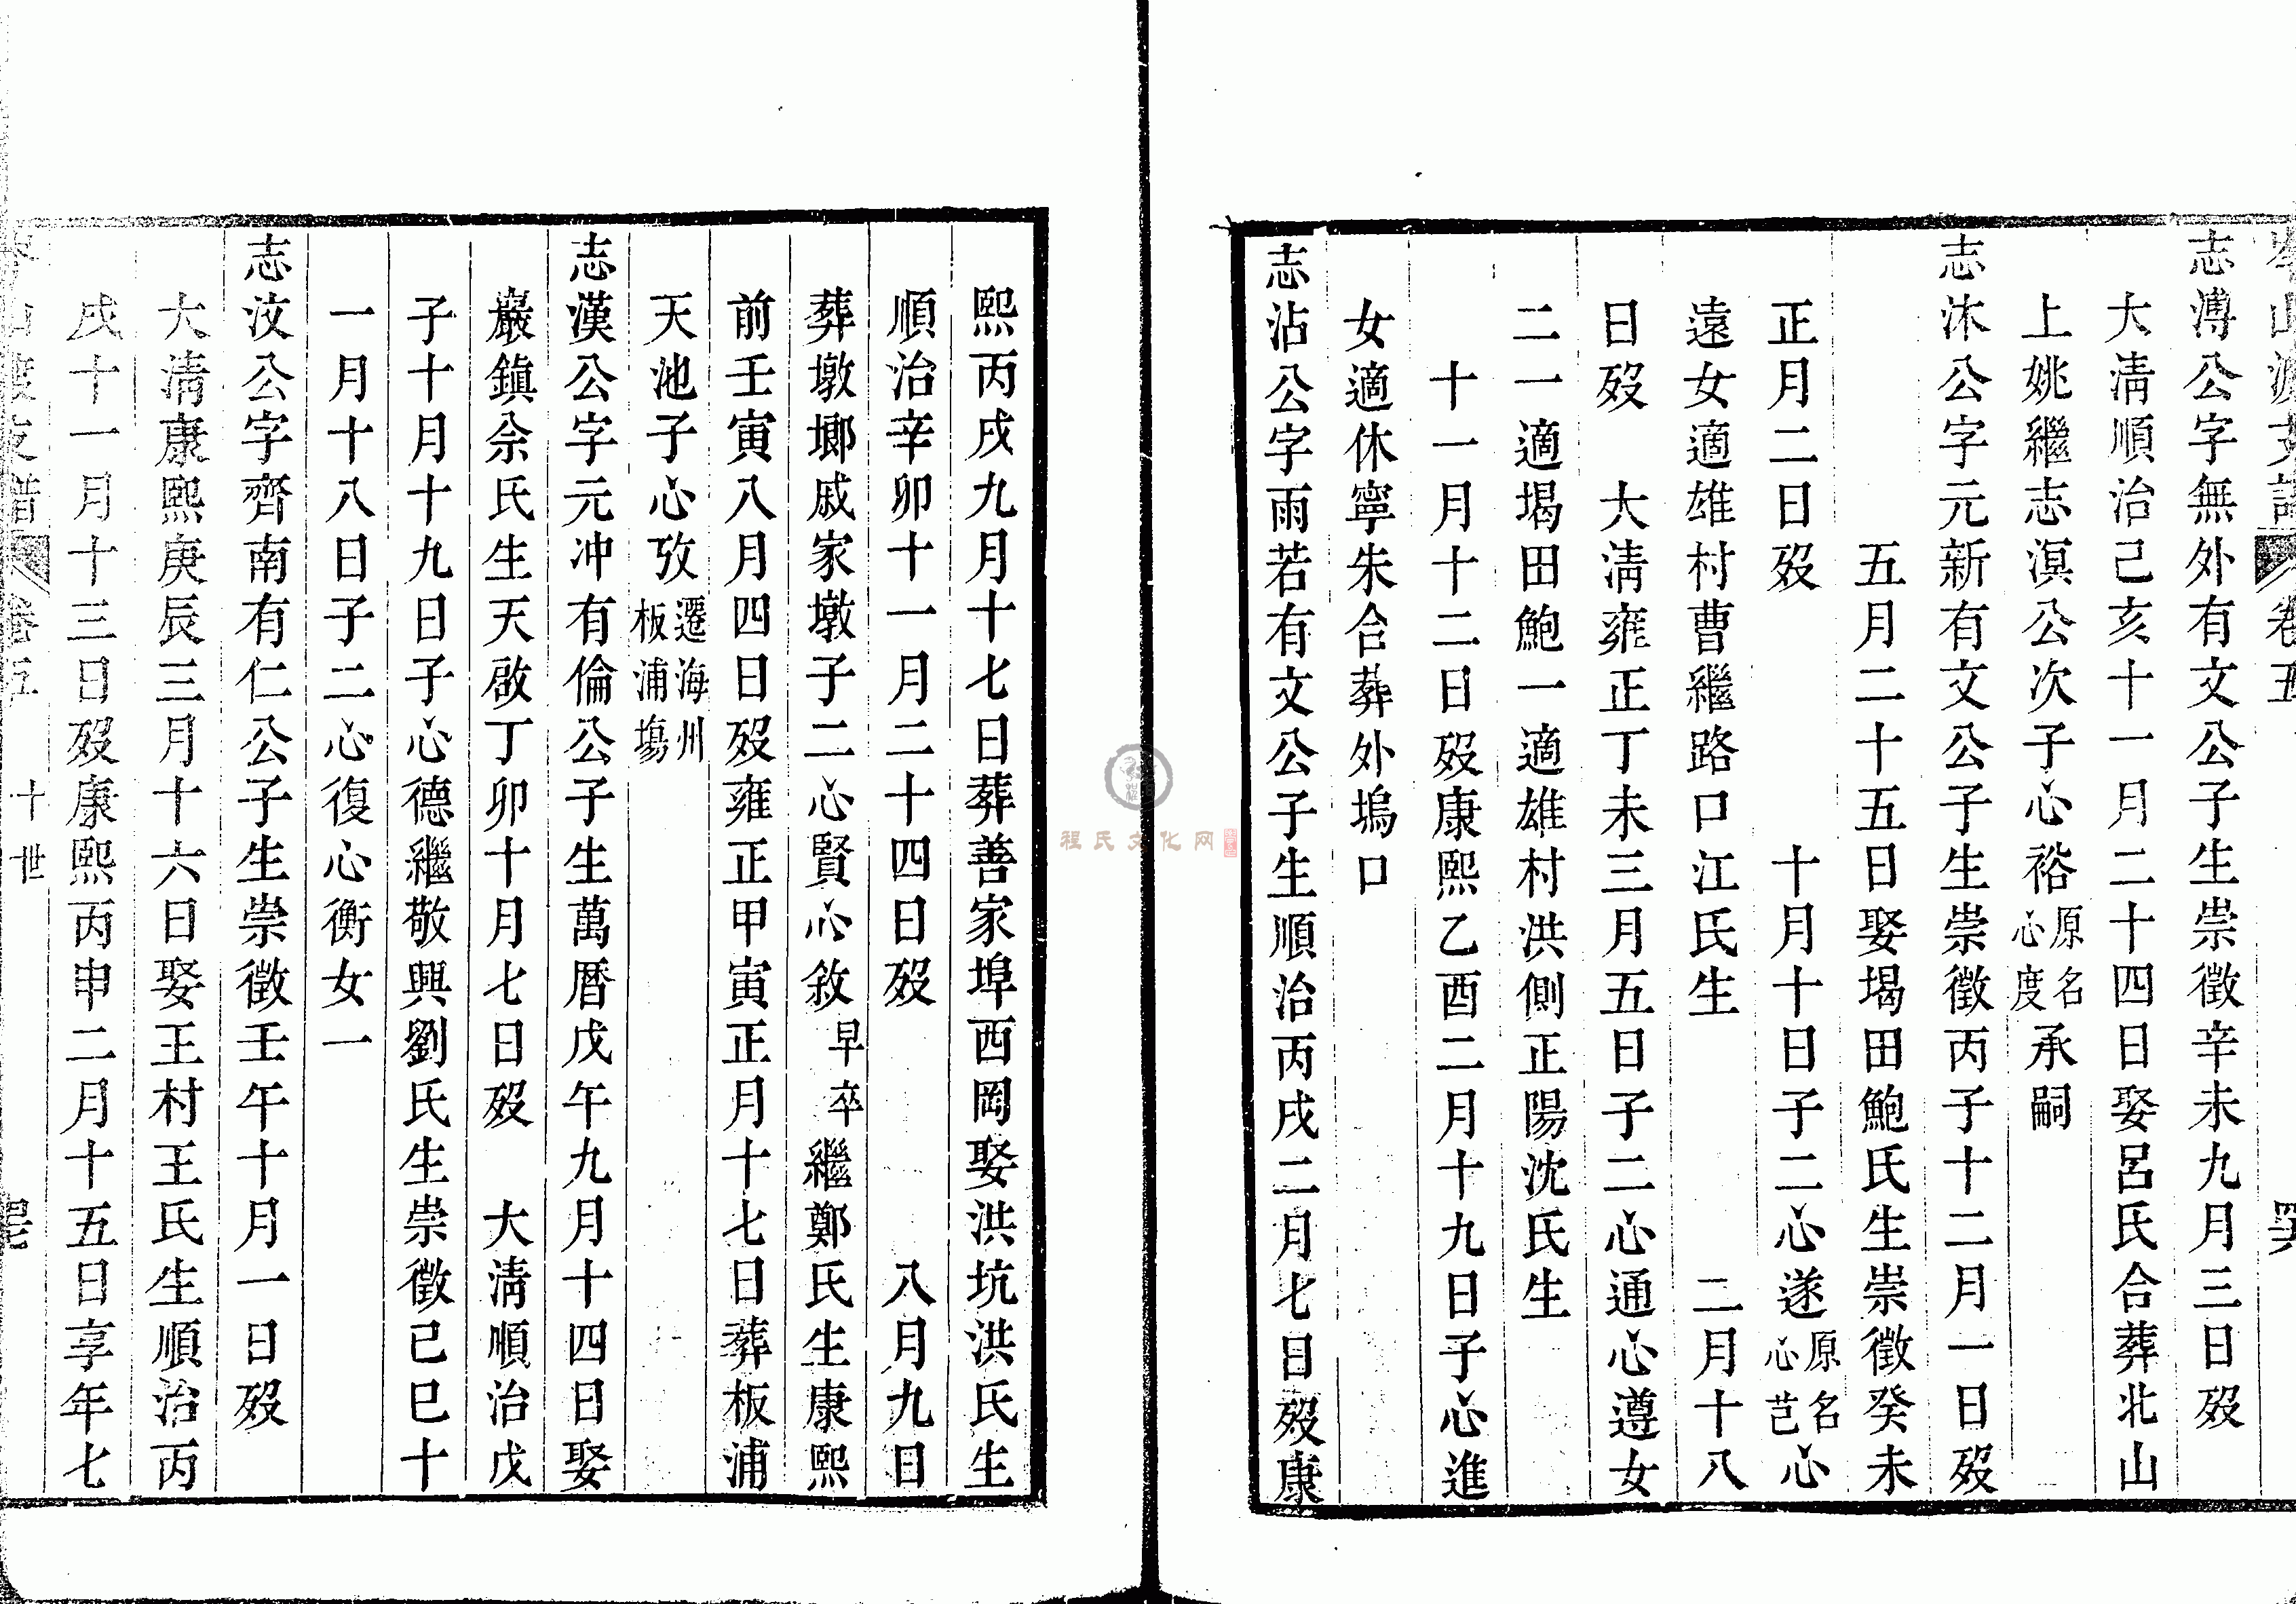 志溥公字無外有文公子生崇徵辛未九月三日歿
大清順治己亥十一月二十四日娶呂氏合葬北山
上姚繼志溟公次子心裕原名心度承嗣
志沐公字元新有文公子生崇徵丙子十二月一日歿
五月二十五日娶堨田鮑氏生崇徵癸未
正月二日歿 十月十日子二心遂原名心芑心
遠女適雄村曹繼路口江氏生 二月十八
日歿 大清雍正丁未三月五日子二心通心遵女
二一適堨田鮑一適雄村洪側正陽沈氏生
十一月十二日歿康熙乙酉二月十九日子心進
女適休寧朱合葬外塢口
志沾公字雨若有文公子生順治丙戌二月七日歿康
熙丙戌九月十七日葬善家埠西岡娶洪坑洪氏生
順治辛卯十一月二十四日歿 八月九日
葬墩塝戚家墩子二心賢心敘早卒繼鄭氏生康熙
前壬寅八月四日歿雍正甲寅正月十七日葬板浦
天池子心攷遷海州板浦塲
志漢公字元冲有倫公子生萬曆戊午九月十四日娶
巖鎮余氏生天啟丁卯十月七日歿 大清順治戊
子十月十九日子心德繼敬興劉氏生崇徵己巳十
一月十八日子二心復心衡女一
志汶公字齊南有仁公子生崇徵壬午十月一日歿
大清康熙庚辰三月十六日娶王村王氏生順治丙
戌十一月十三日歿康熙丙申二月十五日享年七
十世
程氏文化网